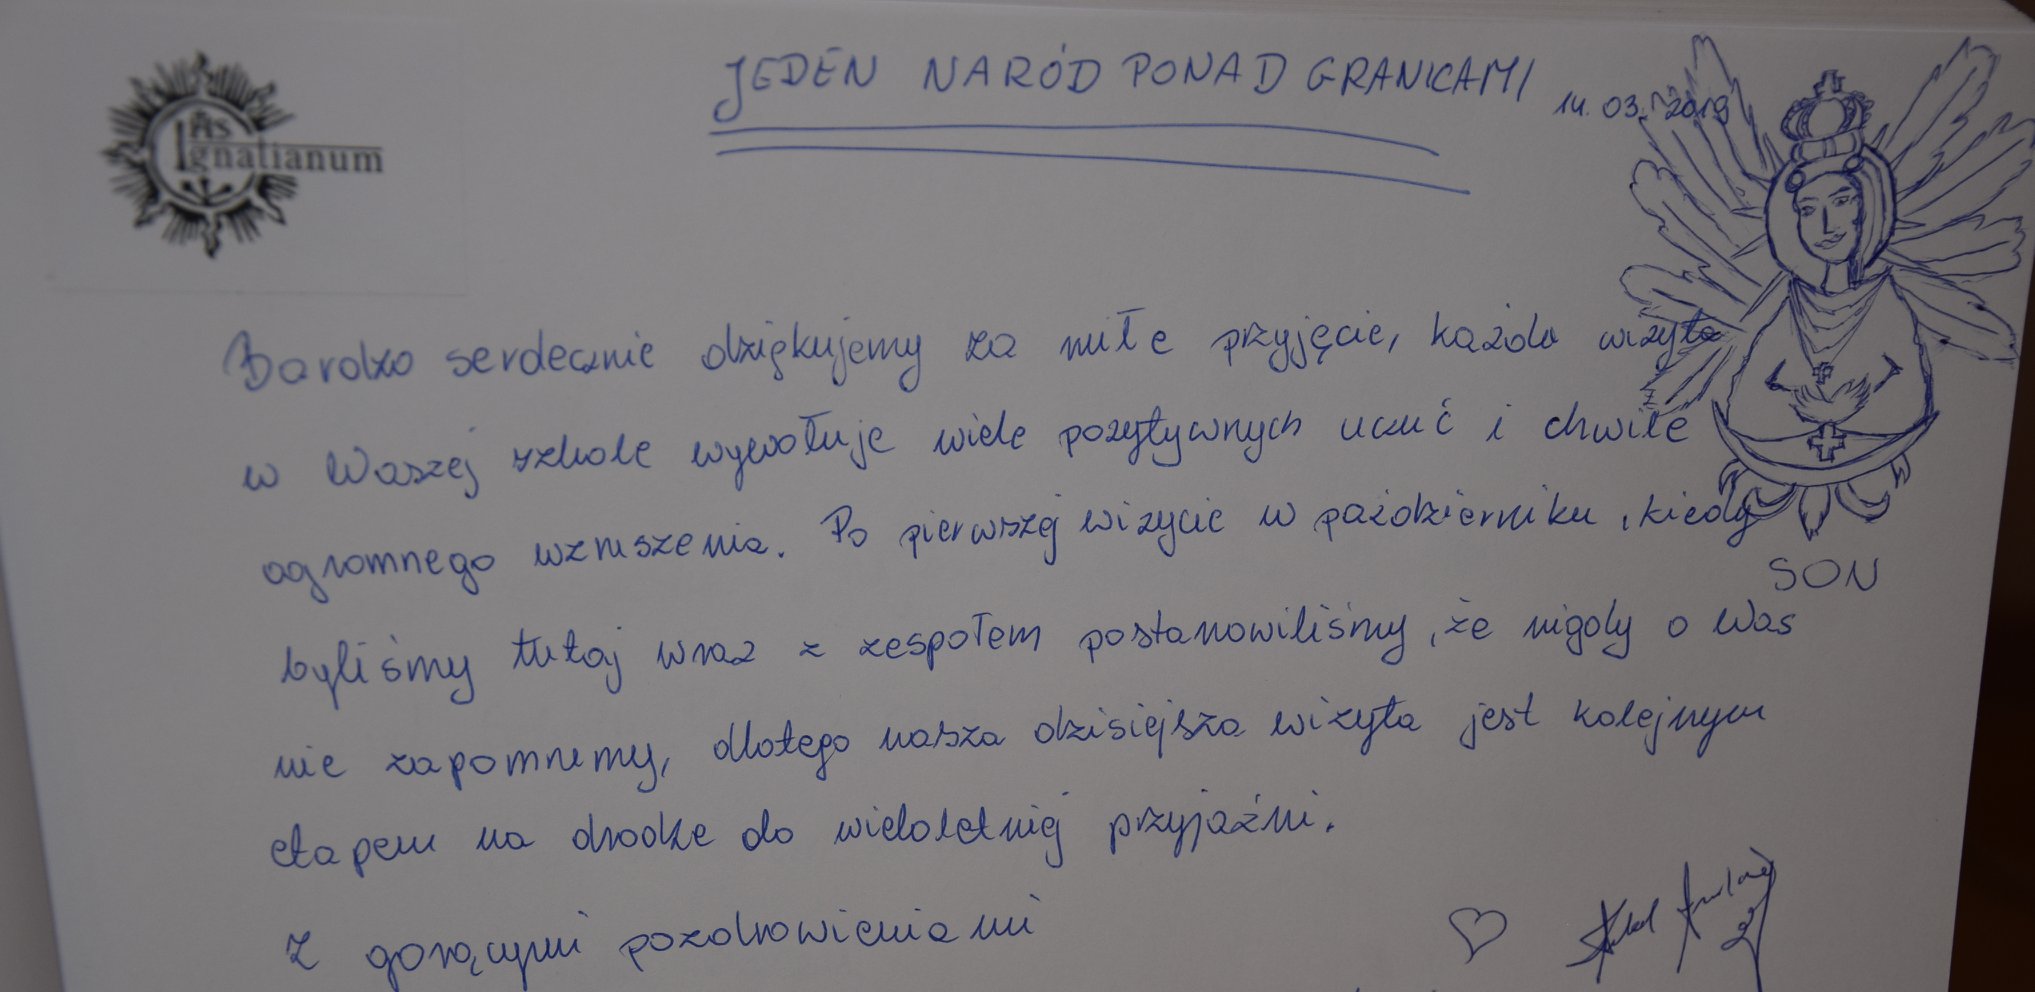 Ignatianum
JEDEN NARÓD PONAD GRANICAMI
14.03.2019
Bardzo serdecznie dziękujemy za miłe przyjęcie, każda wizyta
w Waszej szkole wywołuje wiele pozytywnych uczuć i chwile
ogromnego wzruszenia. Po pierwszej wizycie w październiku, kiedy
SON
byliśmy tutaj wraz z zespołem postanowiliśmy, że nigdy o Was
nie zapomnemy, dlatego nasza dzisiejsza wizyta jest kolejnym
etapem na drodze do wieloletniej przyjaźni.
Z gorącymi pozdrowieniami